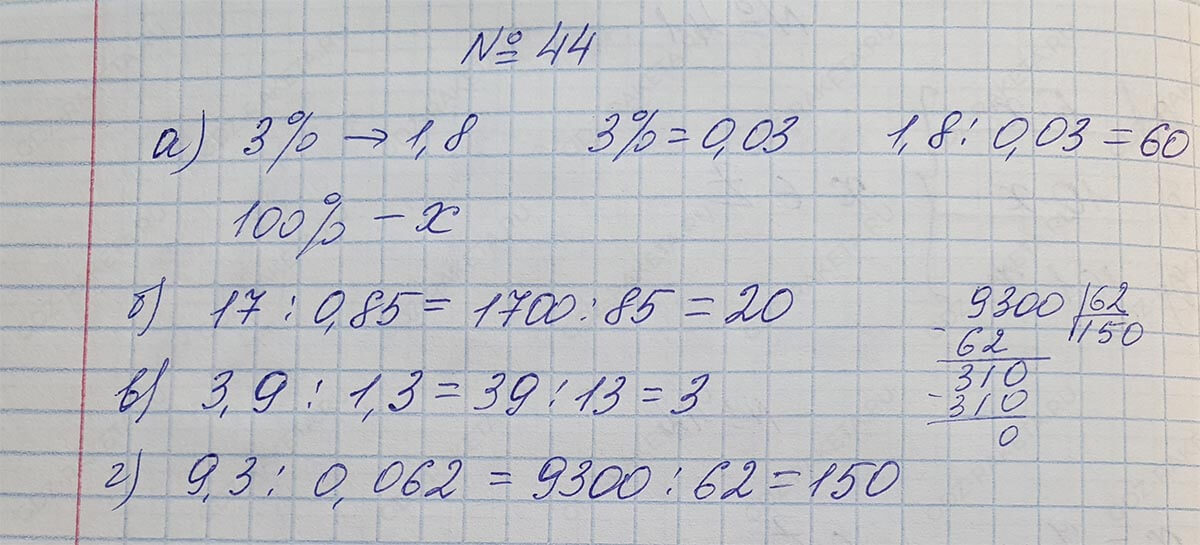 № 44
а) 3% → 1,8 3% = 0,03 1,8 : 0,03 = 60
100% – x
б) 17 : 0,85 = 1700 : 85 = 20
в) 3,9 : 1,3 = 39 : 13 = 3
г) 9,3 : 0,062 = 9300 : 62 = 150
9300 | 62
- 62 | 150
310
- 310
0